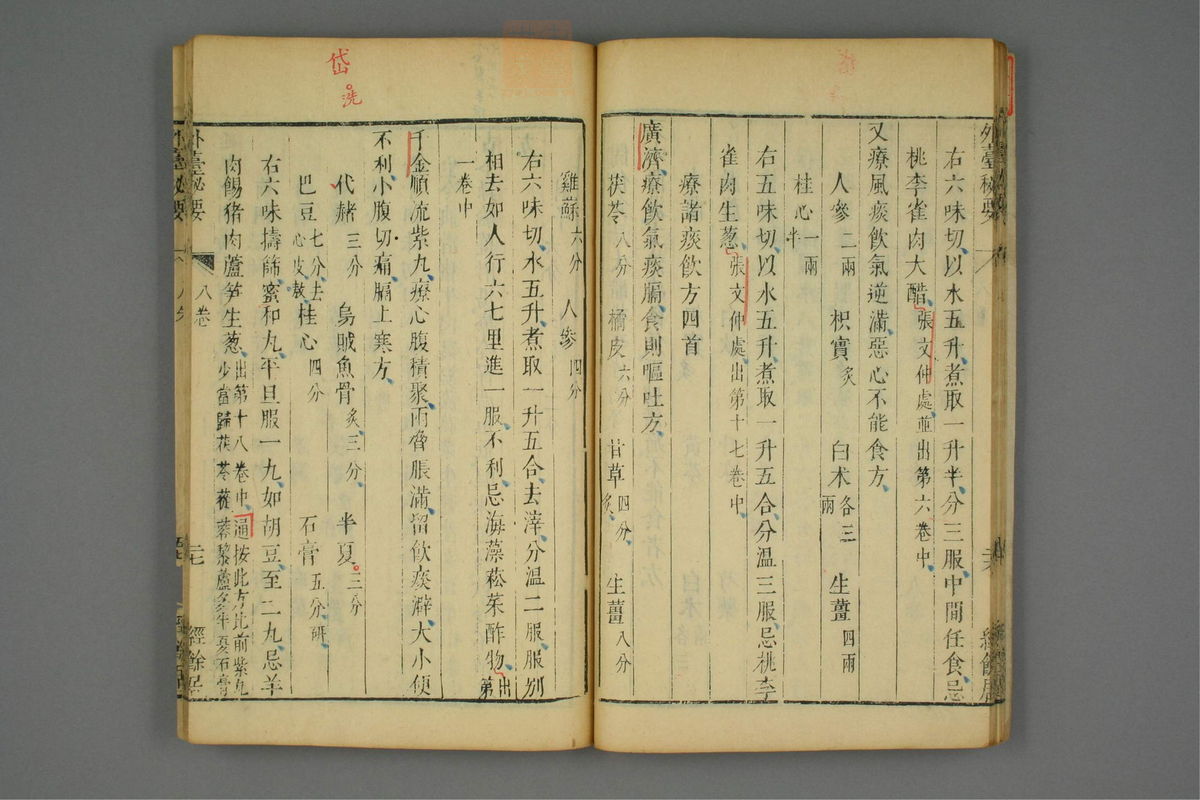 右六味切以水五升煮取一升半分三服中間任食忌
桃李雀肉大醋張文仲處並出第六卷中
又療風痰飲氣逆滿惡心不能食方
人參二兩 枳實炙 白朮各三兩 生薑四兩
桂心一兩半
右五味切以水五升煮取一升五合分溫三服忌桃李
雀肉生葱張文仲處出第十七卷中
療諸痰飲方四首
廣濟療飲氣痰膈食則嘔吐方
茯苓八分 橘皮六分 甘草四分炙 生薑八分
雞蘇六分 人參四分
右六味切水五升煮取一升五合去滓分溫二服服別
相去如人行六七里進一服不利忌海藻菘茱酢物出第
一卷中
千金順流紫丸療心腹積聚兩脅脹滿留飲痰澼大小便
不利小腹切痛膈上寒方
代赭三分 烏賊魚骨炙三分 半夏三分
巴豆七分去心皮熬 桂心四分 石膏五分研
右六味擣篩蜜和丸平旦服一丸如胡豆至二丸忌羊
肉餳猪肉蘆笋生葱出第十八卷中通按此方比前紫丸少當歸茯苓蓯蓉藜蘆多半夏石膏
外臺秘要 八卷 二七 經餘居
外臺秘要 二六 經餘居
岱
洗